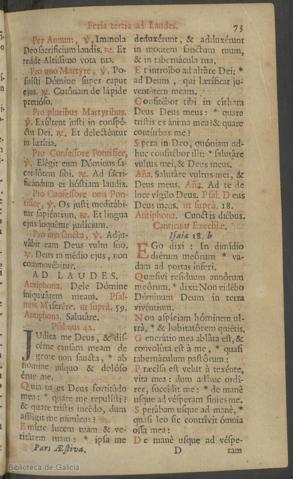 Feria tertia ad Laudes. 73
Per Annum, ℣. Immola
Deo sacrificium laudis. ℟. Et
redde Altissimo vota tua.
Pro uno Martyre, ℣. Po-
suisti Domine super caput
ejus. ℟. Coronam de lapide
pretioso.
Pro pluribus Martyribus.
℣. Exultent justi in conspe-
ctu Dei. ℟. Et delectentur
in lætitia.
Pro Confessore Pontifice,
℣. Elegit eum Dóminus sa-
cerdotem sibi. ℟. Ad sacri-
ficandum ei hóstiam laudis.
Pro Confessore non Pon-
tifice, ℣. Os justi meditábi-
tur sapiéntiam. ℟. Et lingua
ejus loquétur judícium.
Pro non sancta, ℣. Adju-
vábit eam Deus vultu suo.
℟. Deus in médio ejus, non
commovébitur.
AD LAUDES.
Antiphona. Dele Dómine
iniquitátem meam. Psal-
mus Miserére. ut suprà. 59.
Antiphona. Salutáre.
Psalmus 42.
JUdica me Deus, & dis-
cérne causam meam de
gente non sancta, * ab
hómine iníquo & dolóso
érue me.
Quia tu es Deus fortitúdo
mea: * quare me repulísti?
& quare tristis incédo, dum
afflígit me inimícus?
Emítte lucem tuam & ve-
ritátem tuam: * ipsa me
Pars Æstiva.
deduxérunt, & adduxérunt
in montem sanctum tuum,
& in tabernácula tua.
Et introíbo ad altáre Dei: *
ad Deum, qui lætíficat ju-
ventútem meam.
Confitébor tibi in cíthara
Deus Deus meus: * quare
tristis es ánima mea? & quare
contúrbas me?
Spera in Deo, quóniam ad-
huc confitébor illi: * salutáre
vultus mei, & Deus meus.
Aña. Salutáre vultus mei, &
Deus meus. Aña. Ad te de
luce vígilo Deus. Psal. Deus
Deus meus. ut suprà. 18.
Antiphona. Cunctis diébus.
Canticum Ezechiæ.
Isaiæ 38. b
EGo dixi: In dimídio
diérum meórum * va-
dam ad portas ínferi.
Quæsívi resíduum annórum
meórum. * dixi: Non vidébo
Dóminum Deum in terra
vivéntium.
Non aspíciam hóminem ul-
trà, * & habitatórem quiétis.
Generátio mea abláta est, &
convolúta est à me, * quasi
tabernáculum pastórum:
Præcísa est velut à texénte,
vita mea: dum adhuc ordí-
rer, succídit me: * de mane
usque ad vésperam fínies me.
Sperábam usque ad manè, *
quasi leo sic contrívit ómnia
ossa mea:
De manè usque ad véspe-
D ram
Biblioteca de Galicia